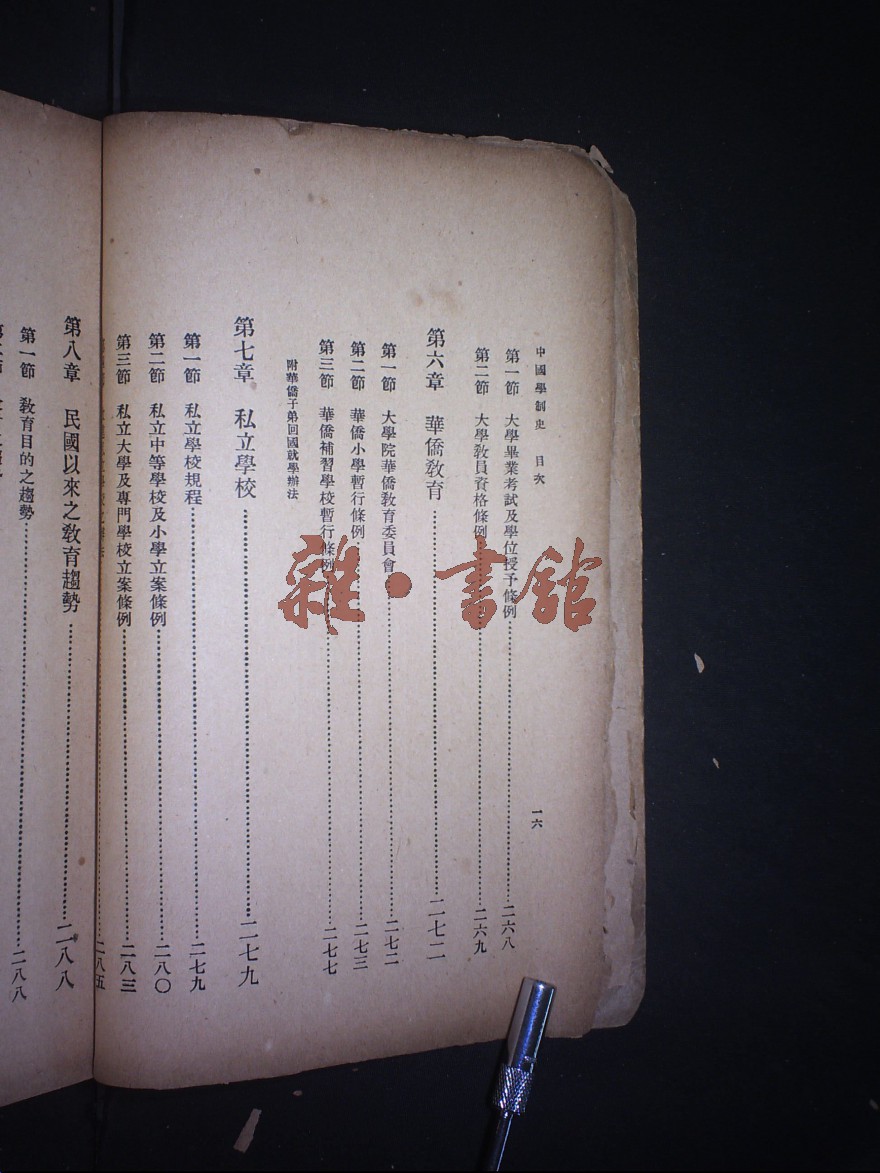 中國學制史 目次 一六
第一節 大學畢業考試及學位授予條例……二六八
第二節 大學教員資格條例……二六九
第六章 華僑教育……二七二
第一節 大學院華僑教育委員會……二七二
第二節 華僑小學暫行條例……二七三
第三節 華僑補習學校暫行條例……二七七
附華僑子弟回國就學辦法
第七章 私立學校……二七九
第一節 私立學校規程……二七九
第二節 私立中等學校及小學立案條例……二八〇
第三節 私立大學及專門學校立案條例……二八三
二八五
第八章 民國以來之教育趨勢……二八八
第一節 教育目的之趨勢……二八八
雜·書館